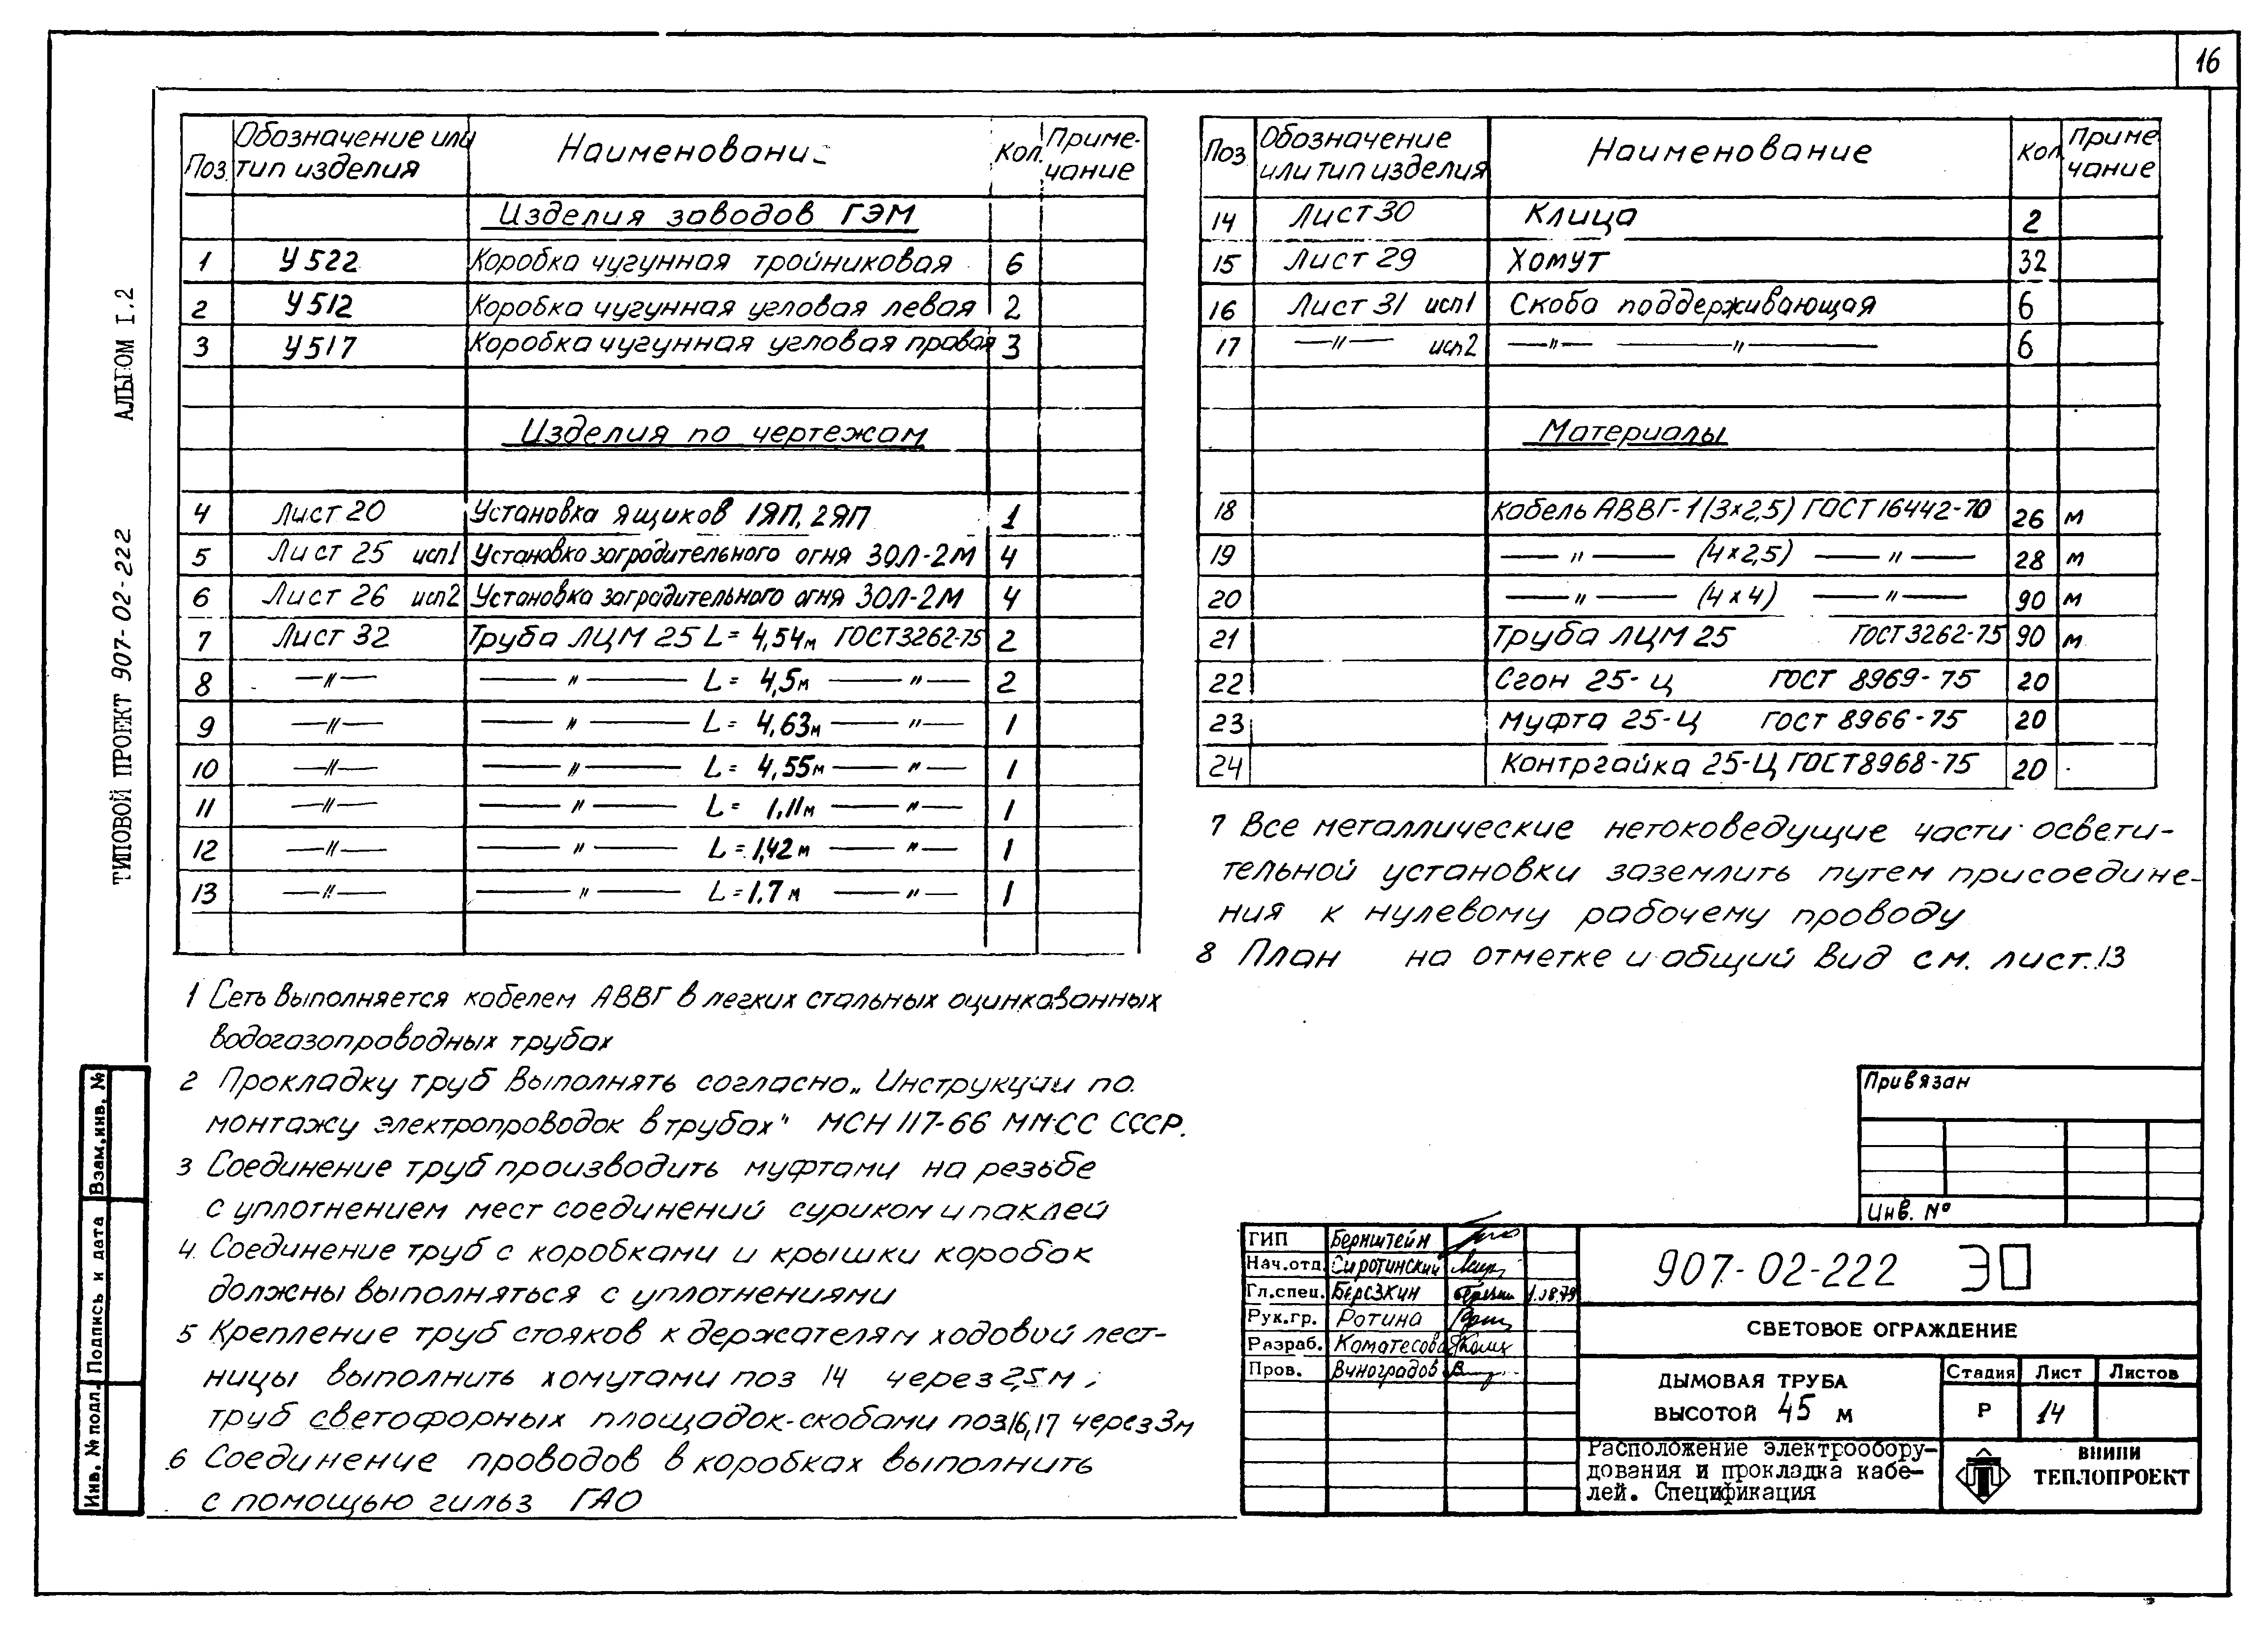 16
Поз. Обозначение или тип изделия Наименовани Кол. Приме-чание
Изделия заводов ГЭМ
1 У522 Коробка чугунная тройниковая 6
2 У512 Коробка чугунная угловая левая 2
3 У517 Коробка чугунная угловая правая 3
Изделия по чертежам
4 Лист 20 Установка ящиков 1ЯП, 2ЯП 1
5 Лист 25 исп1 Установка заградительного огня ЗОЛ-2М 4
6 Лист 26 исп2 Установка заградительного огня ЗОЛ-2М 4
7 Лист 32 Труба ЛЦМ 25 L= 4,54м ГОСТ3262-75 2
8 —"— —"— L= 4,5м —"— 2
9 —"— —"— L= 4,63м —"— 1
10 —"— —"— L= 4,55м —"— 1
11 —"— —"— L= 1,11м —"— 1
12 —"— —"— L=1,42м —"— 1
13 —"— —"— L=1,7м —"— 1
Поз Обозначение или тип изделия Наименование Кол Приме чание
14 Лист 30 Клица 2
15 Лист 29 Хомут 32
16 Лист 31 исп1 Скоба поддерживающая 6
17 —"— исп2 —"— —"— 6
Материалы
18 Кабель АВВГ-1(3×2,5) ГОСТ16442-70 26 м
19 —"— (4×2,5) —"— 28 м
20 —"— (4×4) —"— 90 м
21 Труба ЛЦМ 25 ГОСТ3262-75 90 м
22 Сгон 25-Ц ГОСТ 8969-75 20
23 Муфта 25-Ц ГОСТ 8966-75 20
24 Контргайка 25-Ц ГОСТ8968-75 20
1 Сеть выполняется кабелем АВВГ в легких стальных оцинкованных
водогазопроводных трубах
2 Прокладку труб выполнять согласно „Инструкции по
монтажу электропроводок в трубах" МСН 117-66 ММСС СССР.
3 Соединение труб производить муфтами на резьбе
с уплотнением мест соединений суриком и паклей
4. Соединение труб с коробками и крышки коробок
должны выполняться с уплотнениями
5 Крепление труб стояков к держателям ходовой лест-
ницы выполнить хомутами поз 14 через 2,5м,
труб светофорных площадок-скобами поз16,17 через 3м
6 Соединение проводов в коробках выполнить
с помощью гильз ГАО
7 Все металлические нетоковедущие части освети-
тельной установки заземлить путем присоедине-
ния к нулевому рабочему проводу
8 План на отметке и общий вид см. лист.13
Привязан
Инв. №
ГИП Бернштейн
Нач.отд. Сиротинский
Гл.спец. Березкин
Рук.гр. Ротина
Разраб. Коматесова
Пров. Виноградов
907-02-222 ЭО
СВЕТОВОЕ ОГРАЖДЕНИЕ
ДЫМОВАЯ ТРУБА
ВЫСОТОЙ 45 м
Стадия Лист Листов
Р 14
Расположение электрообору-
дования и прокладка кабе-
лей. Спецификация
ВНИПИ
ТЕПЛОПРОЕКТ
ТИПОВОЙ ПРОЕКТ 907-02-222 АЛЬБОМ I.2
Инв. № подл. Подпись и дата Взам.инв. №